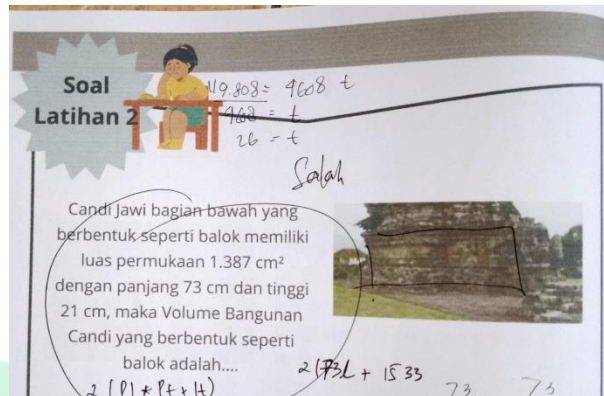 Soal
Latihan 2
119.808 = 4608 t
= t
26 = t
Salah
Candi Jawi bagian bawah yang
berbentuk seperti balok memiliki
luas permukaan 1.387 cm²
dengan panjang 73 cm dan tinggi
21 cm, maka Volume Bangunan
Candi yang berbentuk seperti
balok adalah....
2 (73l + 1533
73 73